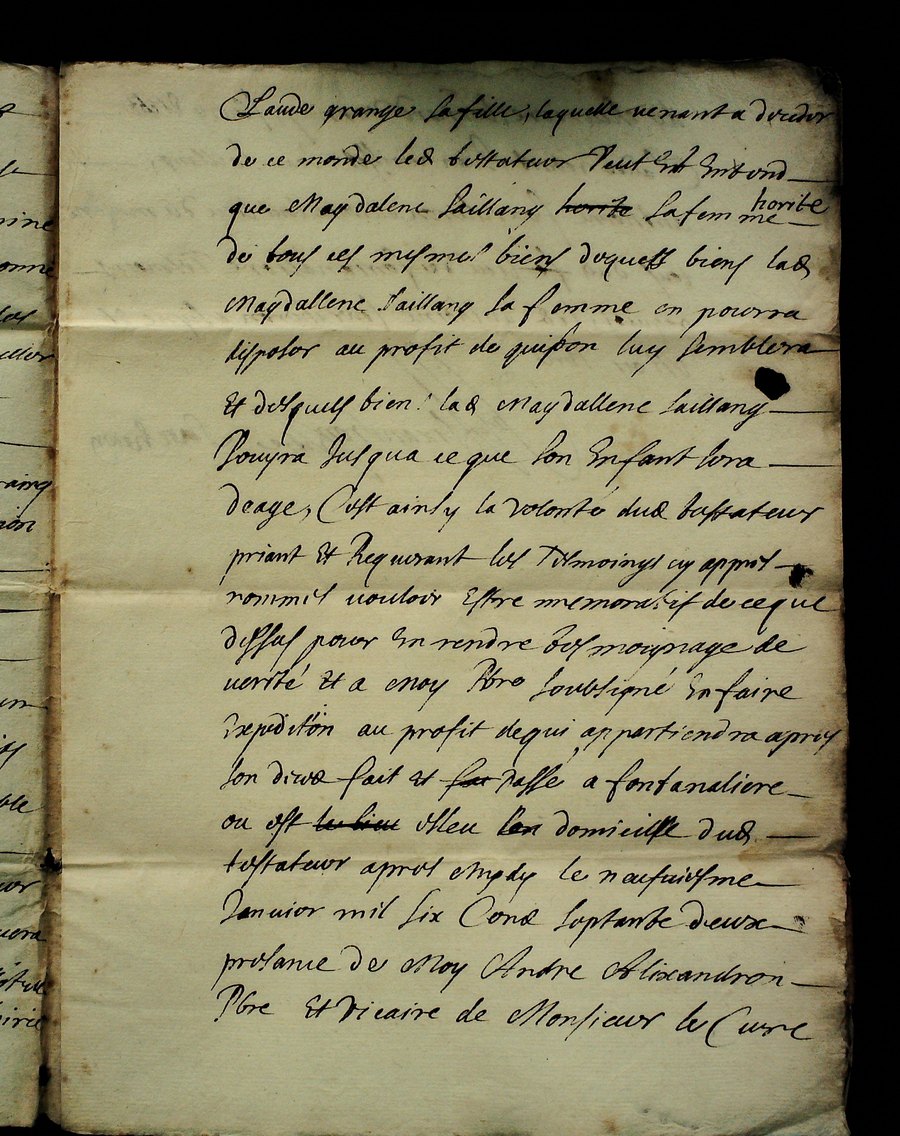 Laude grange sa fille, laquelle venant a deceder
de ce monde led testateur veut Et Entend
que Magdalene Saillang herite sa femme herite
de tous ces mesmes biens desquels biens lad
Magdallene Saillang sa femme en pourra
disposer au profit de qui bon luy semblera
Et desquels biens lad Magdallene Saillang
Jouyra Jusqua ce que son Enfant sera
deage, Cest ainsy la volonte dud testateur
priant Et Requerant les Tesmoings cy appres
nommes vouloir Estre memoratif de ce que
dessus pour En rendre tesmoignage de
verité Et a Moy Pbre soubsigné En faire
Expedition au profit de qui appartiendra apres
son deces fait Et fait Passé a fontanaliere
ou est le lieu esleu len domicille dud
testateur apres Mydy le neufviesme
Janvier mil six Cens septante deux
presance de Moy Andre Alixandren
Pbre Et Vicaire de Monsieur le Cure